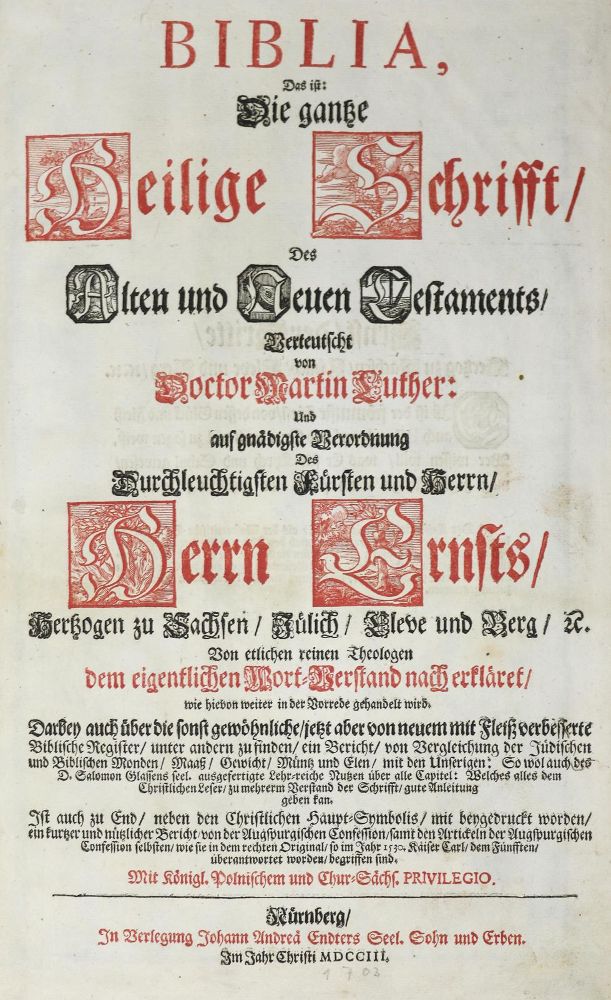 BIBLIA,
Das ist:
Die gantze
Heilige Schrifft/
Des
Alten und Neuen Testaments/
Verteutscht
von
Doctor Martin Luther:
Und
auf gnädigste Verordnung
Des
Durchleuchtigsten Fürsten und Herrn/
Herrn Ernsts/
Hertzogen zu Sachsen/ Jülich/ Cleve und Berg/ ꝛc.
Von etlichen reinen Theologen
dem eigentlichen Wort-Verstand nach erkläret/
wie hievon weiter in der Vorrede gehandelt wird.
Darbey auch über die sonst gewöhnliche/ jetzt aber von neuem mit Fleiß verbesserte
Biblische Register/ unter andern zu finden/ ein Bericht/ von Vergleichung der Jüdischen
und Biblischen Monden/ Maaß/ Gewicht/ Müntz und Elen/ mit den Unserigen: So wol auch des
D. Salomon Glassens seel. ausgefertigte Lehr-reiche Nutzen über alle Capitel: Welches alles dem
Christlichen Leser/ zu mehrerm Verstand der Schrifft/ gute Anleitung
geben kan.
Ist auch zu End/ neben den Christlichen Haupt-Symbolis/ mit beygedruckt worden/
ein kurtzer und nützlicher Bericht/ von der Augspurgischen Confession/ samt den Artickeln der Augspurgischen
Confession selbsten/ wie sie in dem rechten Original/ so im Jahr 1530. Käiser Carl/ dem Fünfften/
überantwortet worden/ begriffen sind.
Mit Königl. Polnischem und Chur-Sächs. PRIVILEGIO.
Nürnberg/
In Verlegung Johann Andreä Endters Seel. Sohn und Erben.
Im Jahr Christi MDCCIII.
1703